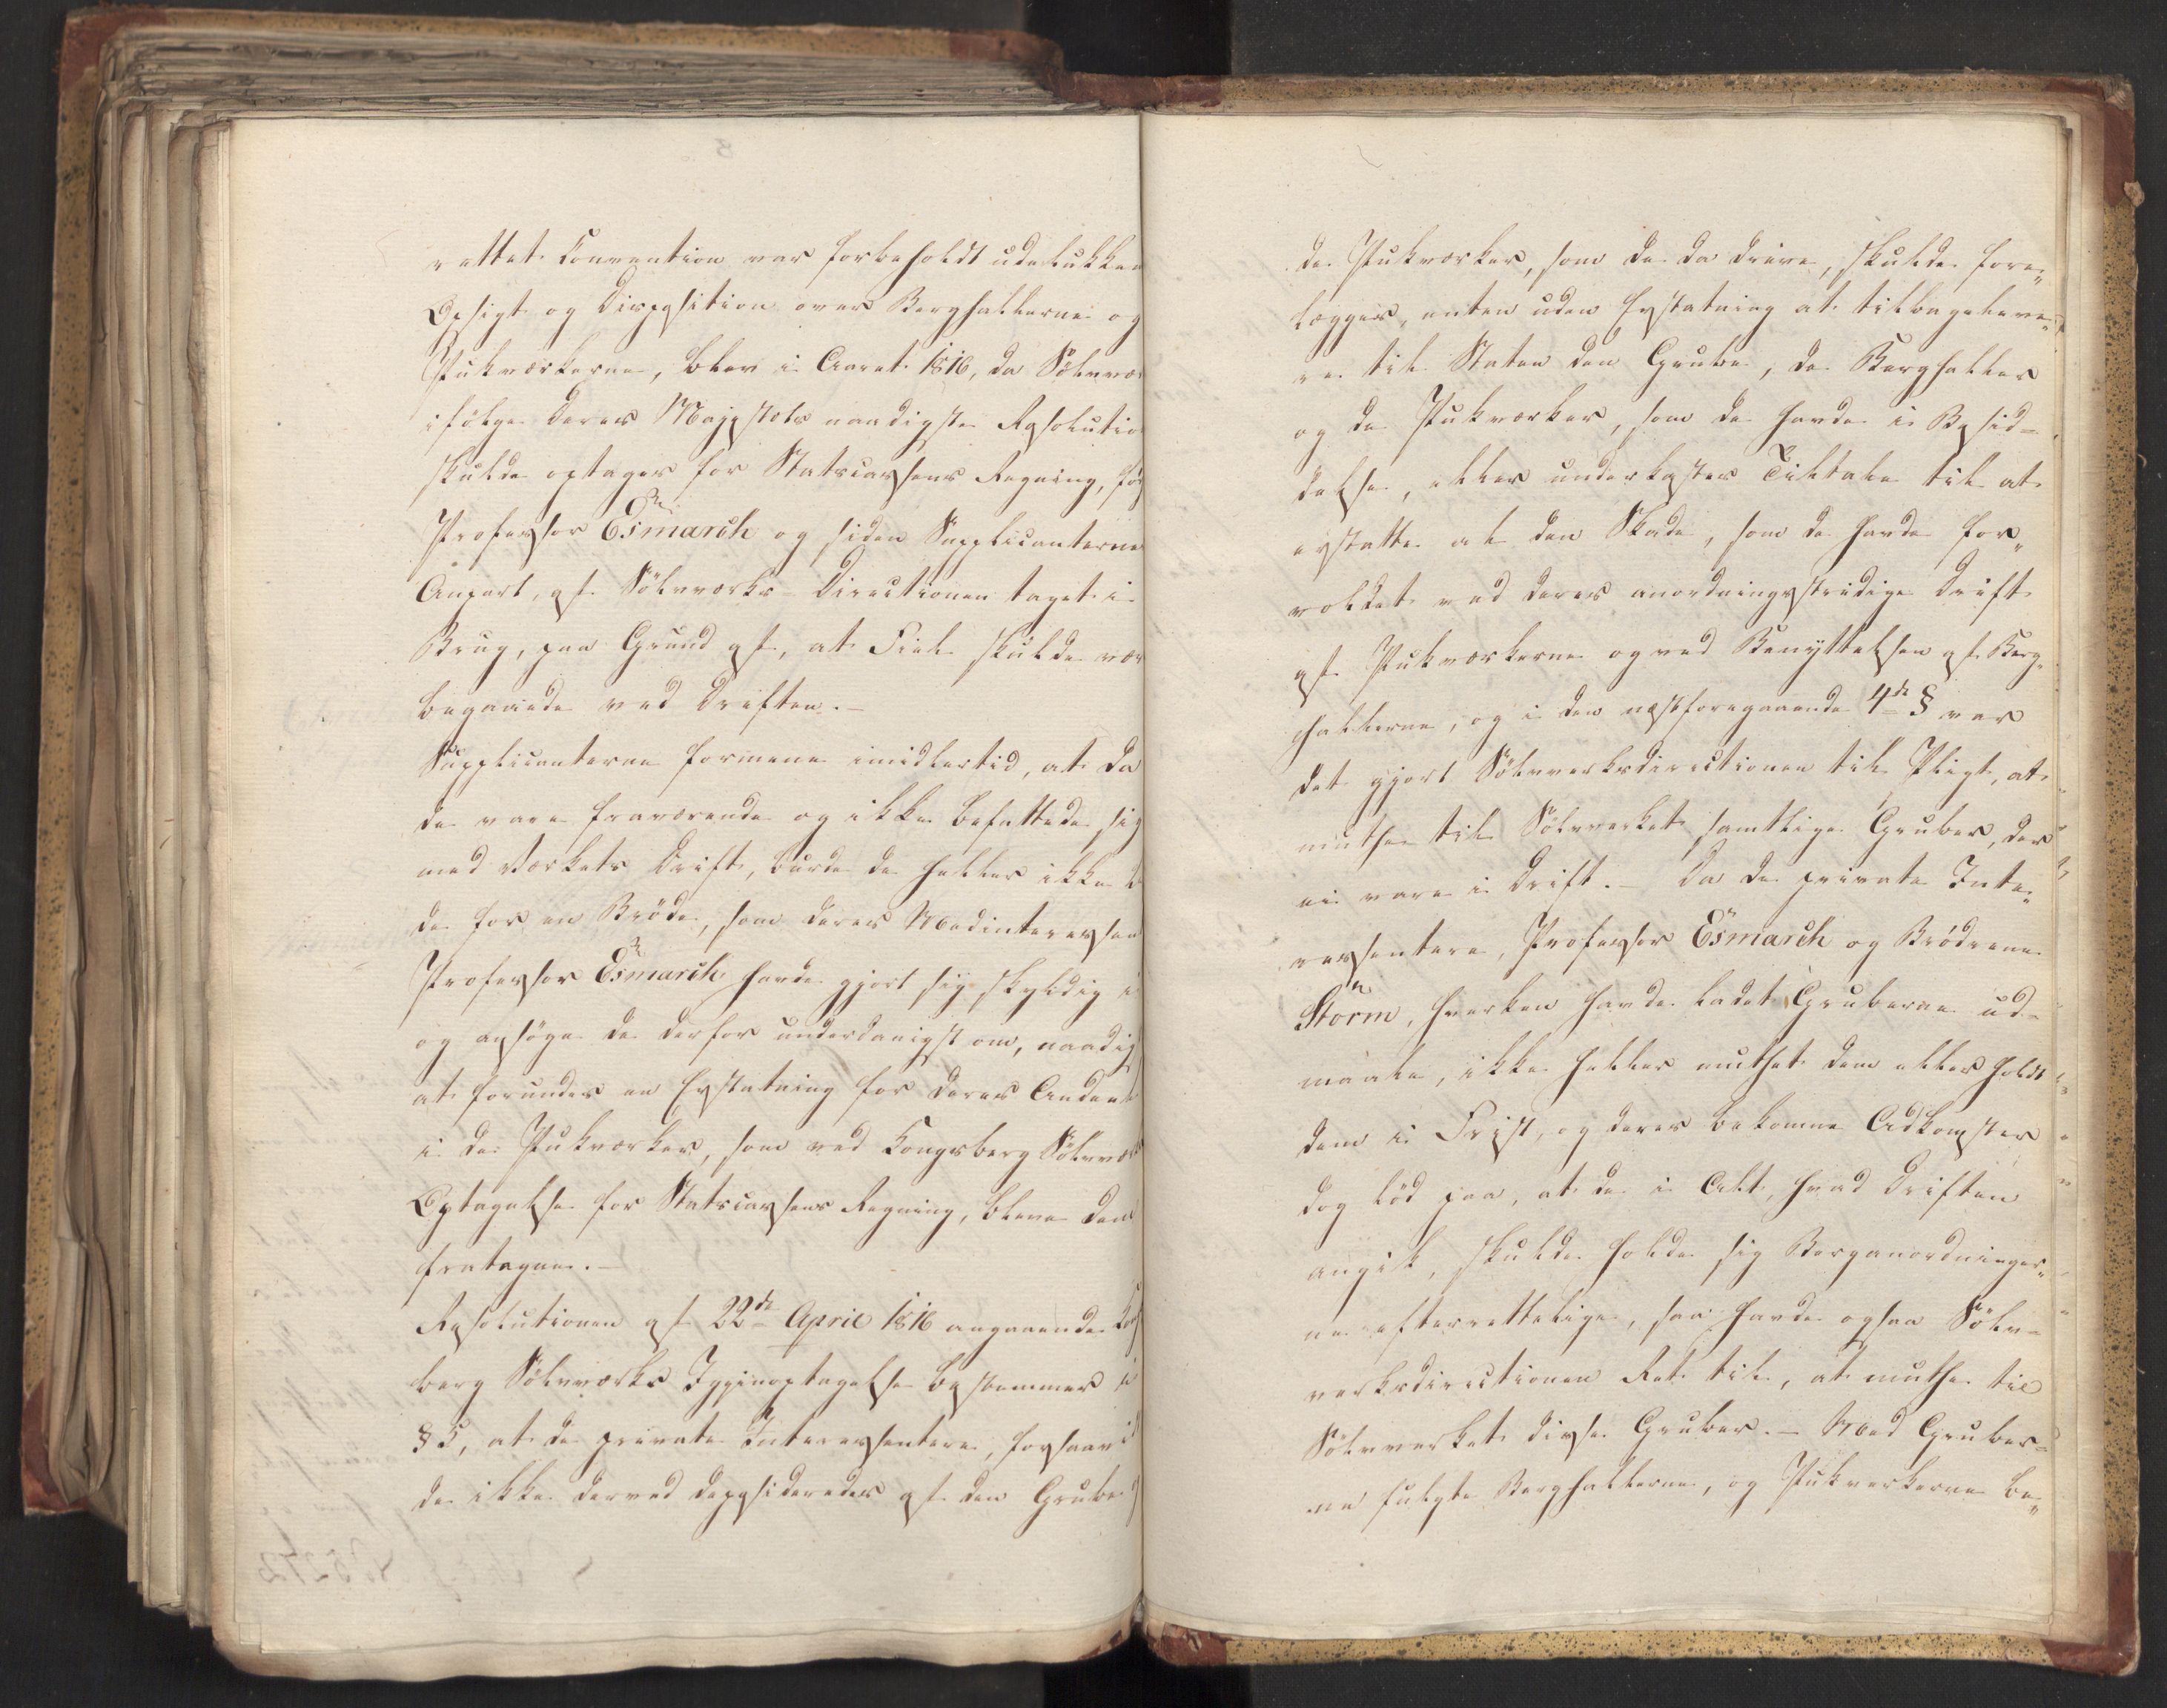 rettet Convention var forbeholdt udelukken
Opsigt og Disposition over Berghallerne og
Pukværkerne, blev i Aaret 1816, da Sølvvær
ifølge Deres Majestæts naadigste Resolutio
skulde optages for Statscassens Regning, før
Professor Esmarch og siden Supplicanterne
Anpart, af Sølvværks-Directionen taget i
Brug, paa Grund af, at Fiel skulde vær
begaaede ved Driften.-
Supplicanterne formene imidlertid, at da
de vare fraværende og ikke befattede sig
med Værkets Drift, burde de heller ikke
de for en Brøde, som deres Medinteressen
Professor Esmarch havde gjort sig skyldig i
og ansøge de derfor underdanigst om, naadig
at forundes en Erstatning for deres Andeel
i de Pukværker, som ved Kongsberg Sølvvær
Optagelse for Statscassens Regning, bleve dem
fratagne.-
Resolutionen af 22de April 1816 angaaende Kong
berg Sølvværks Igjenoptagelse bestemmer i
§ 5, at de private Interessentere, forsaavi
de ikke derved deposideredes af den Grube
de Pukværker, som de da dreve, skulde fore„
lægges, enten uden Erstatning at tilbageleve„
re til Staten den Grube, de Berghaller
og de Pukværker, som de havde i Besid=
delse, eller underkastes Tiltale til at
erstatte al den Skade, som de havde for„
voldet ved deres anordningsstridige Drift
af Pukværkerne og ved Benyttelsen af Berg„
hallerne, og i den næstforegaaende 4de § var
det gjort Sølvverksdirectionen til Pligt, at
muthe til Sølvverket samtlige Gruber, der
ei vare i Drift.- Da de private Inte„
ressentere, Professor Esmarch og Brødrene
Storm, hverken havde ladet Gruberne ud=
maale, ikke heller muthet dem eller holdt
dem i Frist, og deres bekomne Adkomster
dog lød paa, at de i Alt, hvad Driften
angik, skulde holde sig Berganordninger„
ne efterrettelige, saa havde ogsaa Sølv=
verksdirectionen Ret til, at muthe til
Sølvverket disse Gruber.- Med Gruber=
ne fulgte Berghallerne, og Pukverkerne be„